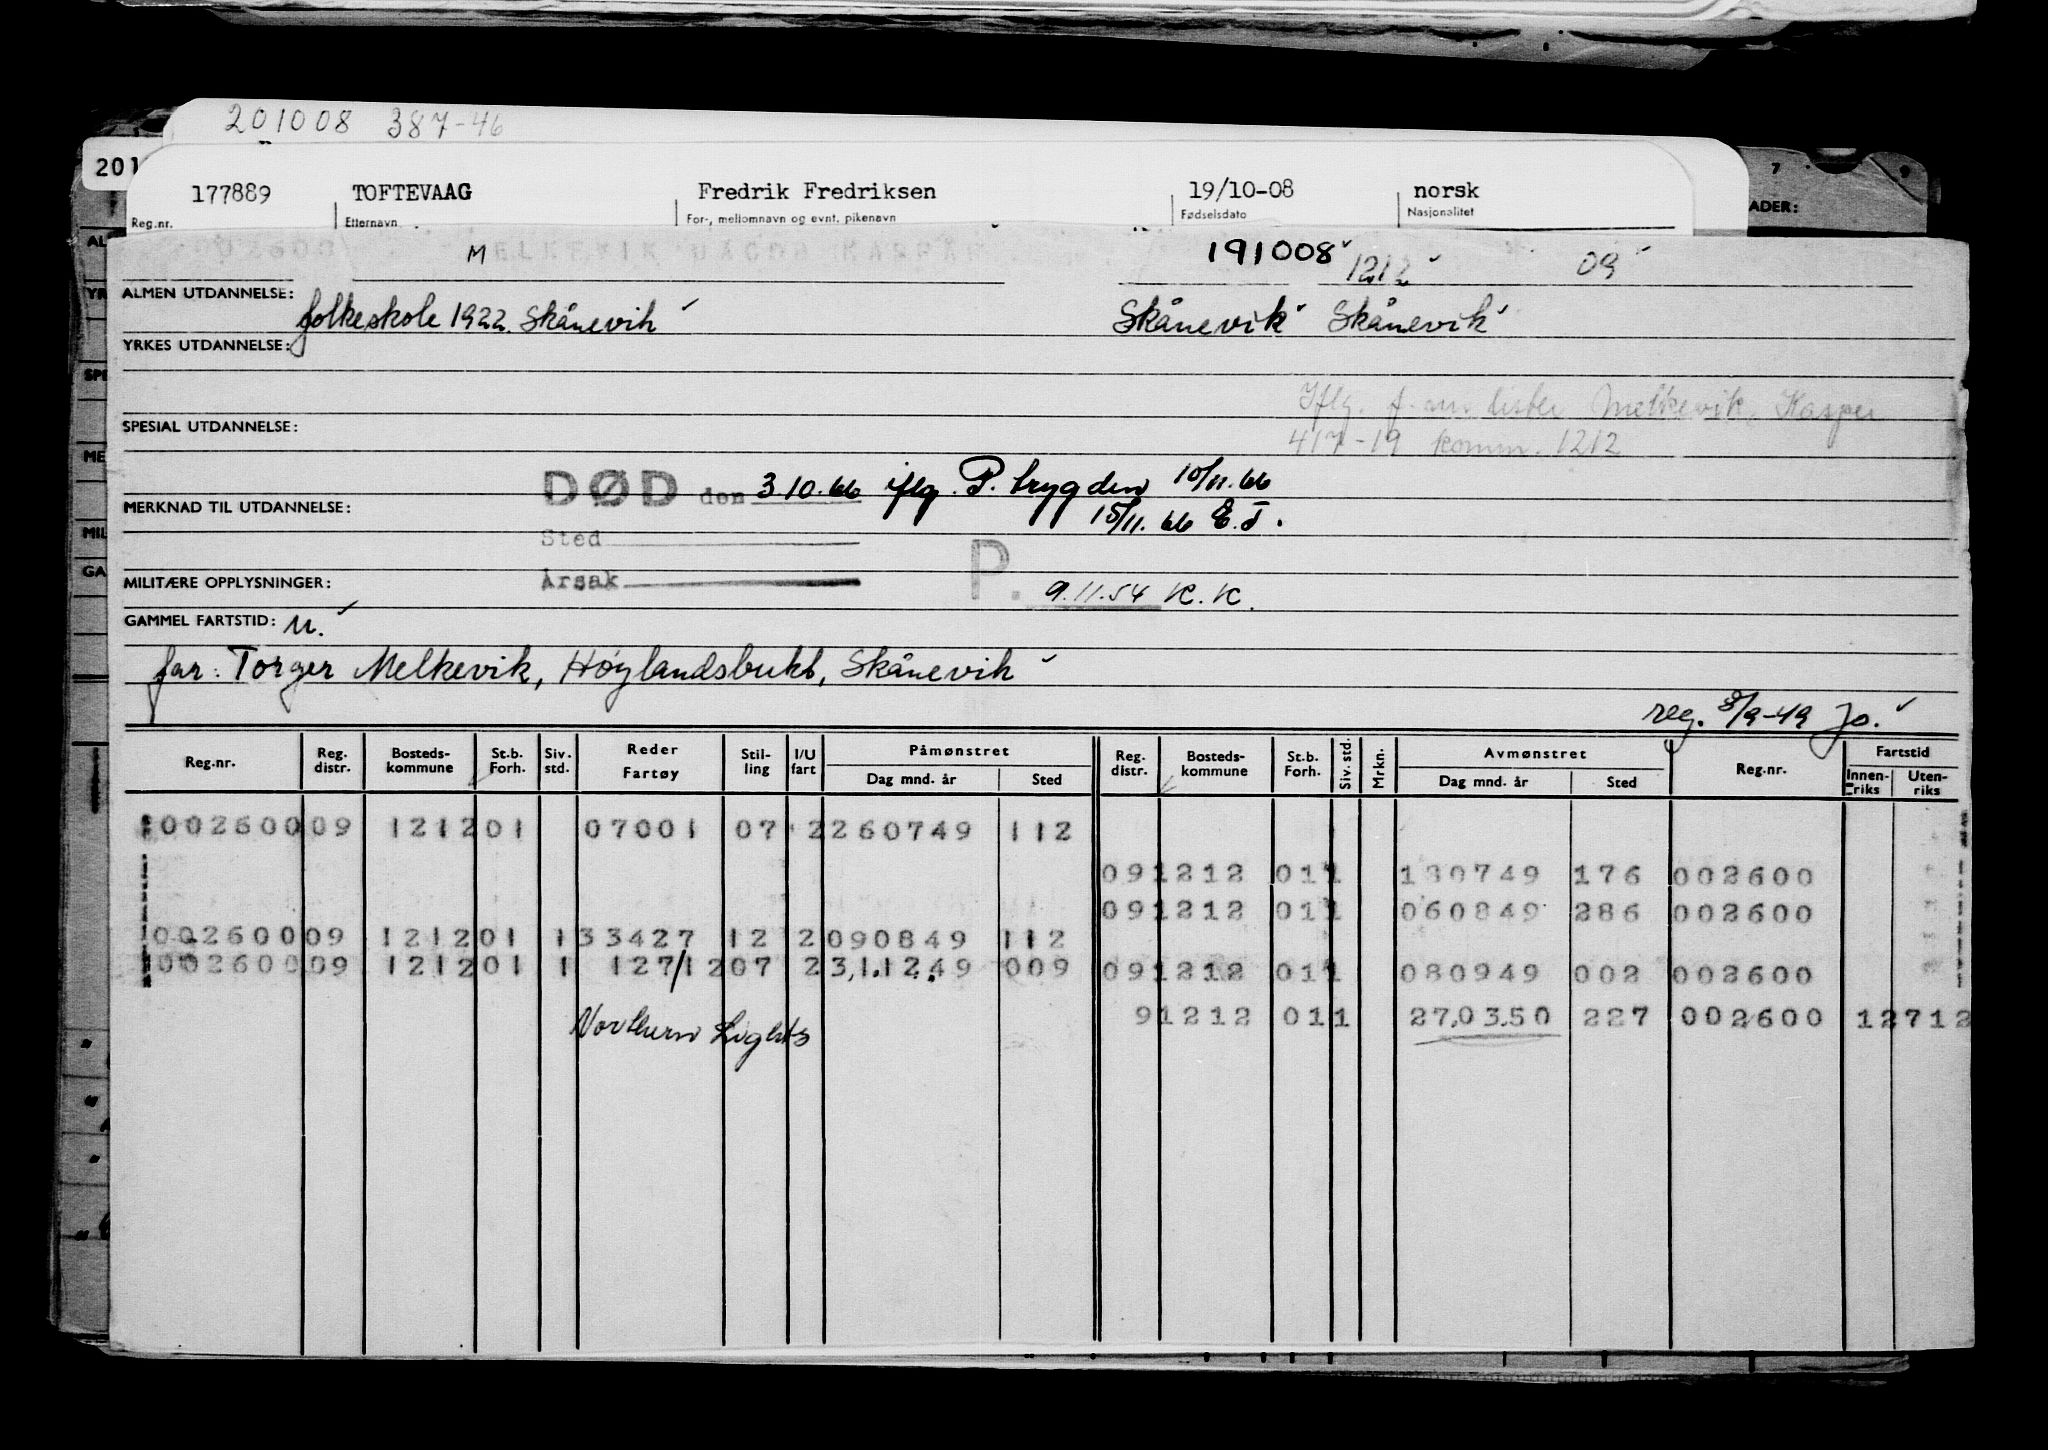 201008 387-46
201
177889 TOFTEVAAG Fredrik Fredriksen 19/10-08 norsk
Reg.nr. Etternavn For-, mellomnavn og evnt. pikenavn Fødselsdato Nasjonalitet
ADER:
7 9
002600 M MELKEVIK JACOB KASPAR 191008 1212 09
ALMEN UTDANNELSE: folkeskole 1922 Skånevik Skånevik Skånevik
YRKES UTDANNELSE:
Iflg. lister Melkevik, Kasper
SPESIAL UTDANNELSE: 417-19 komm. 1212
DØD den 3.10.66 iflg. P. trygden 10/11.66
MERKNAD TIL UTDANNELSE: 15/11.66 E.T.
Sted
MILITÆRE OPPLYSNINGER: Årsak P. 9.11.54 K.K.
GAMMEL FARTSTID: u.
far: Torger Melkevik, Høylandsbukt, Skånevik
reg. 8/9-49 Jo.
Reg.nr. Reg. distr. Bosteds- kommune St.b. Forh. Siv. std. Reder Fartøy Stil- ling I/U fart Påmønstret Dag mnd. år Sted Reg. distr. Bosteds- kommune St.b. Forh. Siv. std. Mrkn. Avmønstret Dag mnd. år Sted Reg.nr. Fartstid Innen- riks Uten- riks
002600 09 1212 01 07001 07 2 260749 112
09 1212 01 1 180749 176 002600
09 1212 01 1 060849 286 002600
002600 09 1212 01 1 33427 12 2 090849 112
002600 09 1212 01 1 127/12 07 2 3,1.12.49 009 09 1212 01 1 080949 002 002600
Northern Lights 9 1212 01 1 27.03.50 227 002600 12 712